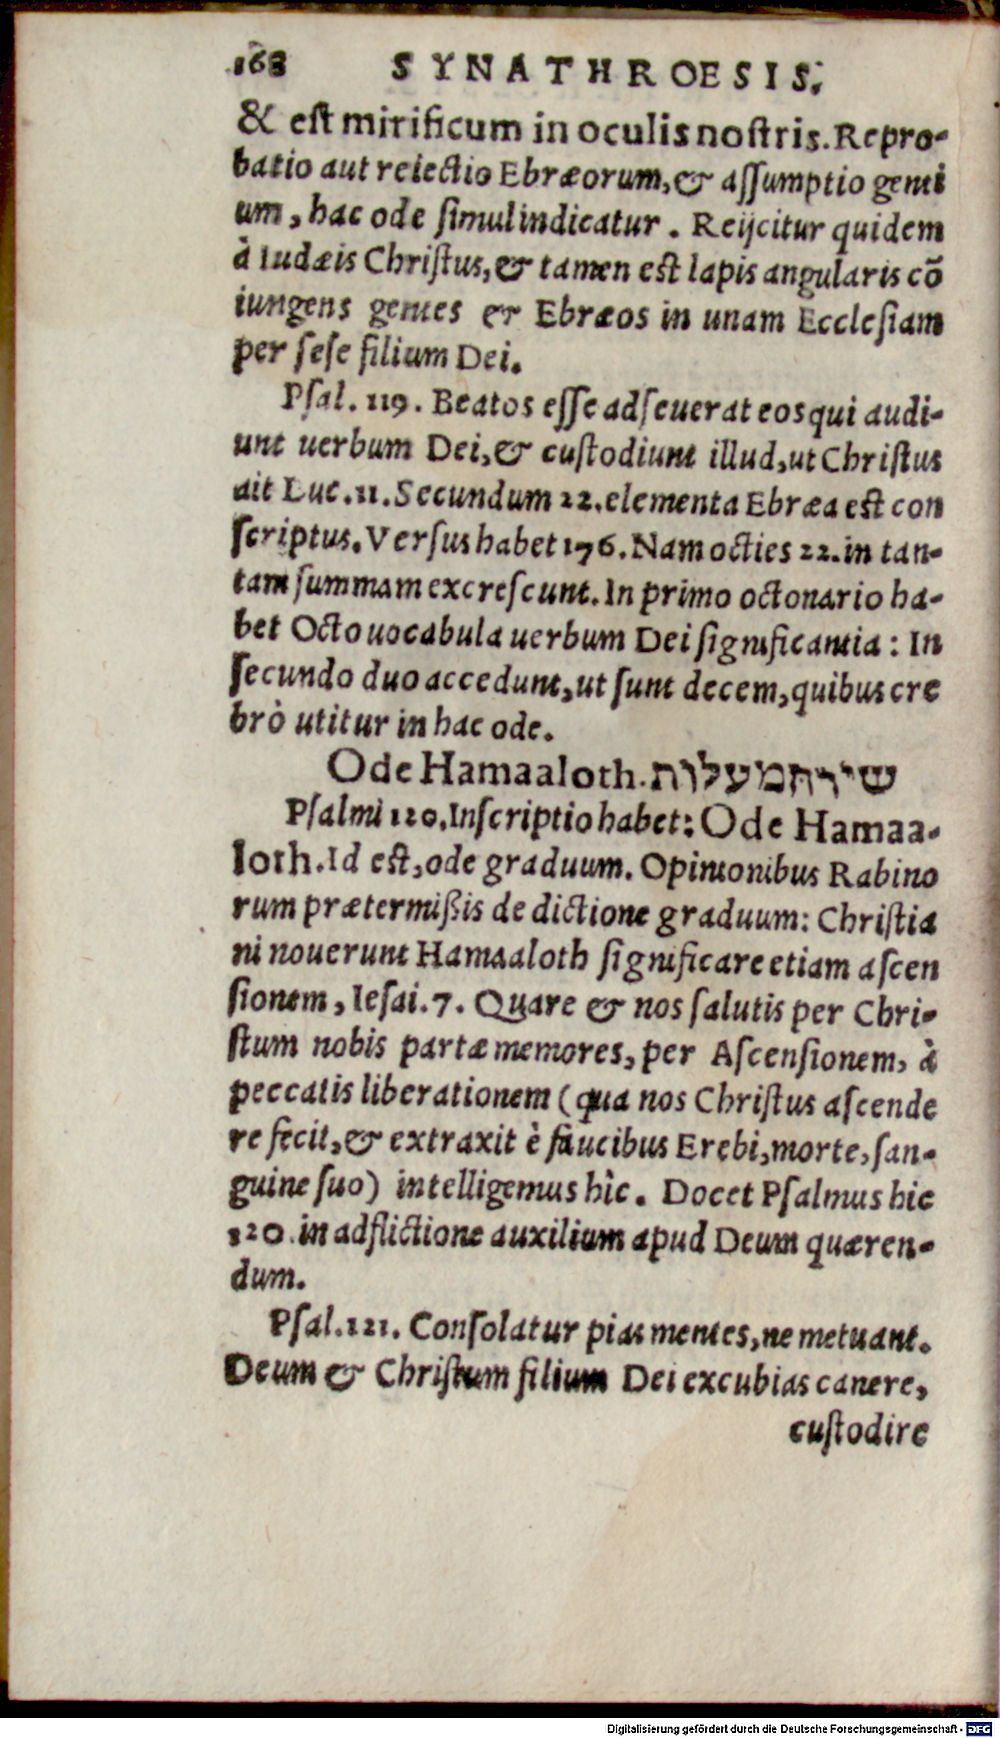 168 SYNATHROESIS.
& est mirificum in oculis nostris. Repro-
batio aut reiectio Ebræorum, & assumptio genti
um, hac ode simul indicatur. Reijcitur quidem
à Iudæis Christus, & tamen est lapis angularis cõ
iungens gentes & Ebræos in unam Ecclesiam
per sese filium Dei.
Psal. 119. Beatos esse adseuerat eos qui audi-
unt uerbum Dei, & custodiunt illud, ut Christus
ait Luc. 11. Secundum 22. elementa Ebræa est con
scriptus. Versus habet 176. Nam octies 22. in tan-
tam summam excrescunt. In primo octonario ha-
bet Octo uocabula uerbum Dei significantia: In
secundo duo accedunt, ut sunt decem, quibus cre
brò utitur in hac ode.
Ode Hamaaloth. שיר המעלות
Psalmi 120. Inscriptio habet: Ode Hamaa-
loth. Id est, ode graduum. Opinionibus Rabino
rum prætermißis de dictione graduum: Christia
ni nouerunt Hamaaloth significare etiam ascen
sionem, Iesai. 7. Quare & nos salutis per Chri-
stum nobis partæ memores, per Ascensionem, à
peccatis liberationem (qua nos Christus ascende
re fecit, & extraxit è faucibus Erebi, morte, san-
guine suo) intelligemus hìc. Docet Psalmus hic
120. in adflictione auxilium apud Deum quæren-
dum.
Psal. 121. Consolatur pias mentes, ne metuant.
Deum & Christum filium Dei excubias canere,
custodire
Digitalisierung gefördert durch die Deutsche Forschungsgemeinschaft - DFG